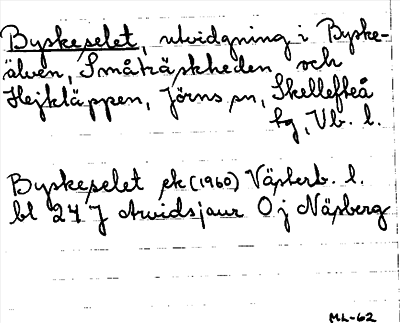 Byskeselet, utvidgning i Byske-
älven, Småträskheden och
Hejkläppen, Jörns sn, Skellefteå
tg, Vb. l.
Byskeselet ek (1960) Västerb. l.
bl 24 J Arvidsjaur 0 j Näsberg
ML-62